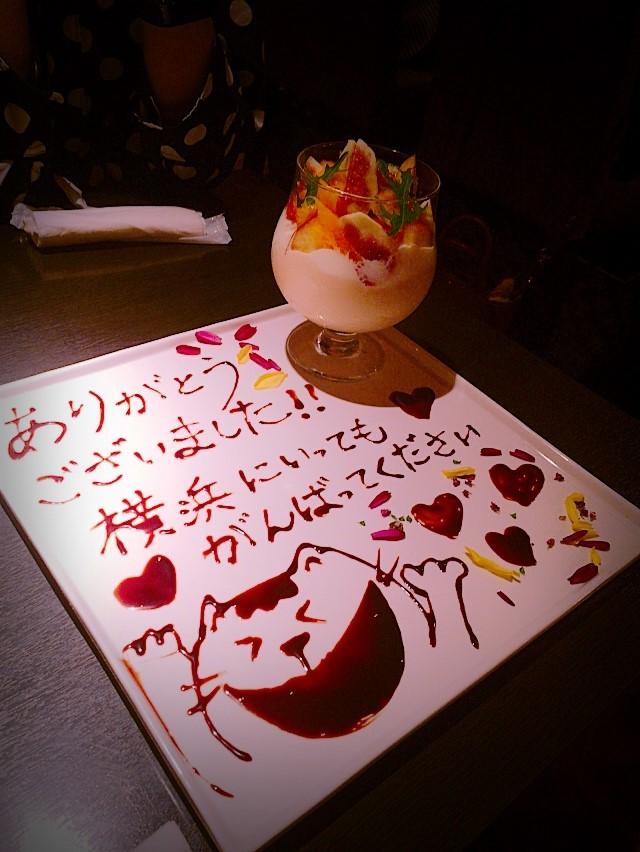 ありがとう
ございました!!
横浜にいっても
がんばってください